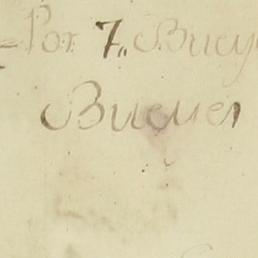 Por 7,, Buey
Bueyes